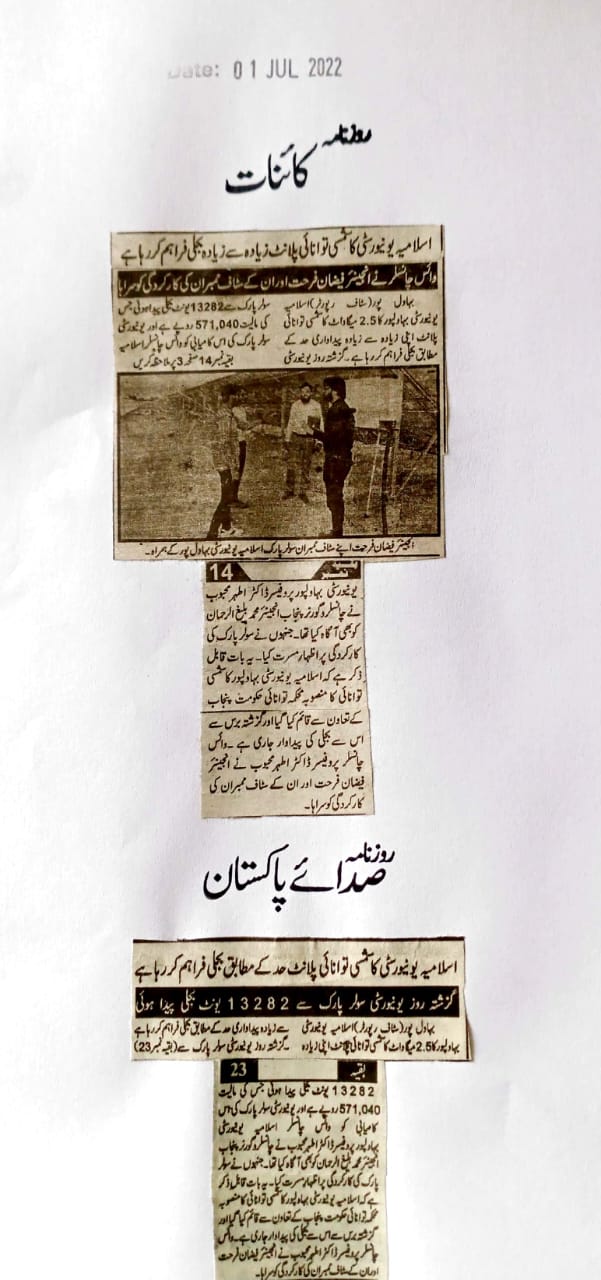 Date: 01 JUL 2022
روزنامہ
کائنات
اسلامیہ یونیورسٹی کا شمسی توانائی پلانٹ زیادہ سے زیادہ بجلی فراہم کر رہا ہے
وائس چانسلر نے انجینئر فیضان فرحت اور ان کے سٹاف ممبران کی کارکردگی کو سراہا
بہاول پور(سٹاف رپورٹر)اسلامیہ
یونیورسٹی بہاولپور کا 2.5 میگاواٹ کا شمسی توانائی
پلانٹ اپنی زیادہ سے زیادہ پیداواری حد کے
مطابق بجلی فراہم کر رہا ہے۔ گزشتہ روز یونیورسٹی
سولر پارک سے 13282 یونٹ بجلی پیدا ہوئی جس
کی مالیت 571,040 روپے ہے اور یونیورسٹی
سولر پارک کی اس کامیابی کو وائس چانسلر اسلامیہ
بقیہ نمبر 14 صفحہ 3 پر ملاحظہ کریں
انجینئر فیضان فرحت اپنے سٹاف ممبران سولر پارک اسلامیہ یونیورسٹی بہاول پور کے ہمراہ۔
بقیہ نمبر 14
یونیورسٹی بہاولپور پروفیسر ڈاکٹر اطہر محبوب
نے چانسلر و گورنر پنجاب انجینئر محمد بلیغ الرحمان
کو بھی آگاہ کیا تھا۔ جنہوں نے سولر پارک کی
کارکردگی پر اظہار مسرت کیا۔ یہ بات قابل
ذکر ہے کہ اسلامیہ یونیورسٹی بہاولپور کا شمسی
توانائی کا منصوبہ محکمہ توانائی حکومت پنجاب
کے تعاون سے قائم کیا گیا اور گزشتہ برس سے
اس سے بجلی کی پیداوار جاری ہے۔ وائس
چانسلر پروفیسر ڈاکٹر اطہر محبوب نے انجینئر
فیضان فرحت اور ان کے سٹاف ممبران کی
کارکردگی کو سراہا۔
روزنامہ
صدائے پاکستان
اسلامیہ یونیورسٹی کا شمسی توانائی پلانٹ حد کے مطابق بجلی فراہم کر رہا ہے
گزشتہ روز یونیورسٹی سولر پارک سے 13282 یونٹ بجلی پیدا ہوئی
بہاول پور(سٹاف رپورٹر)اسلامیہ یونیورسٹی
بہاولپور کا 2.5 میگا واٹ کا شمسی توانائی پلانٹ اپنی زیادہ
سے زیادہ پیداواری حد کے مطابق بجلی فراہم کر رہا ہے
۔گزشتہ روز یونیورسٹی سولر پارک سے (بقیہ نمبر 23)
بقیہ 23
13282 یونٹ بجلی پیدا ہوئی جس کی مالیت
571,040 روپے ہے اور یونیورسٹی سولر پارک کی اس
کامیابی کو وائس چانسلر اسلامیہ یونیورسٹی
بہاولپور پروفیسر ڈاکٹر اطہر محبوب نے چانسلر و گورنر پنجاب
انجینئر محمد بلیغ الرحمان کو بھی آگاہ کیا تھا۔ جنہوں نے سولر
پارک کی کارکردگی پر اظہار مسرت کیا۔ یہ بات قابل ذکر
ہے کہ اسلامیہ یونیورسٹی بہاولپور کا شمسی توانائی کا منصوبہ
محکمہ توانائی حکومت پنجاب کے تعاون سے قائم کیا گیا اور
گزشتہ برس سے اس سے بجلی کی پیداوار جاری ہے۔ وائس
چانسلر پروفیسر ڈاکٹر اطہر محبوب نے انجینئر فیضان فرحت
اور ان کے سٹاف ممبران کی کارکردگی کو سراہا۔